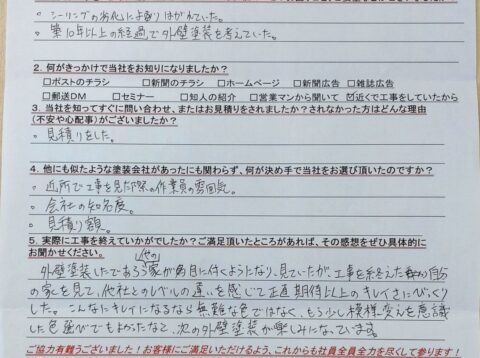 。シーリングの劣化により剥がれていた。
。築10年以上の経過で外壁塗装を考えていた。
2. 何がきっかけで当社をお知りになりましたか?
□ポストのチラシ □新聞のチラシ □ホームページ □新聞広告 □雑誌広告
□郵送DM □セミナー □知人の紹介 □営業マンから聞いて ☑近くで工事をしていたから
3. 当社を知ってすぐに問い合わせ、またはお見積りをされましたか?されなかった方はどんな理由
(不安や心配事)がございましたか?
。見積りをした。
4. 他にも似たような塗装会社があったにも関わらず、何が決め手で当社をお選び頂いたのですか?
。近所で工事を見た際の作業員の雰囲気。
。会社の知名度。
。見積り額。
5. 実際に工事を終えていかがでしたか?ご満足頂いたところがあれば、その感想をぜひ具体的に
お聞かせください。
外壁塗装したであろう他の家が角目に付くようになり、見ていたが、工事を終えた自分
の家を見て、他社とのレベルの違いを感じて正直期待以上のキレイさにびっくり
した。こんなにキレイになるなら無難な色ではなく、もう少し模様変えを意識
した色選びでもよかったなと、次の外壁塗装が楽しみになっています。
ご協力有難うございました!お客様にご満足いただけるよう、これからも社員全員全力を尽くして参ります!